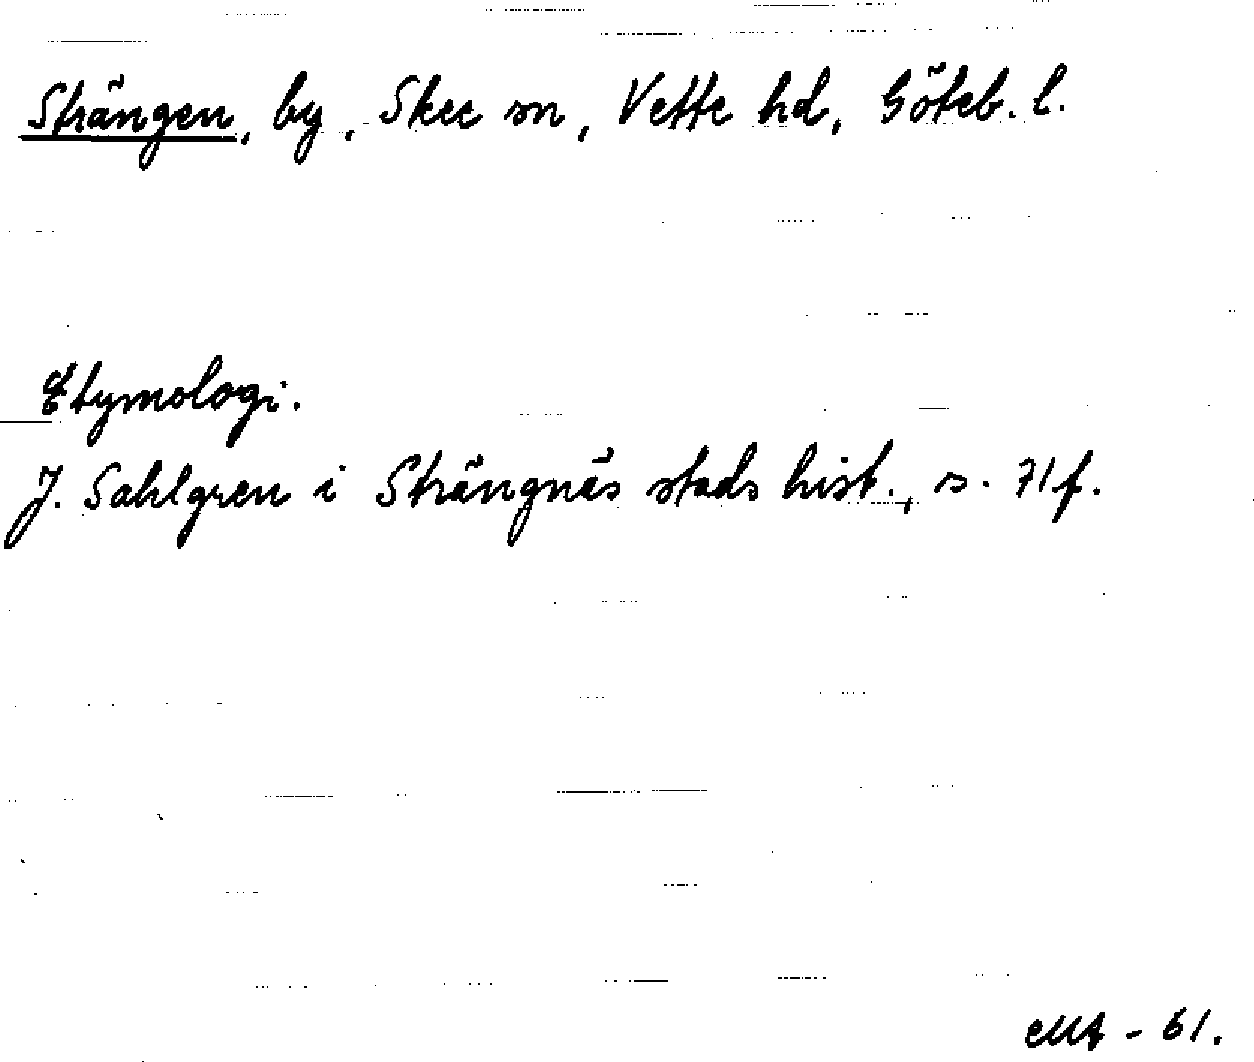 Strängen, by, Skee sn, Vette hd, Göteb. l.
Etymologi.
J. Sahlgren i Strängnäs stads hist., s. 71 f.
- 61.